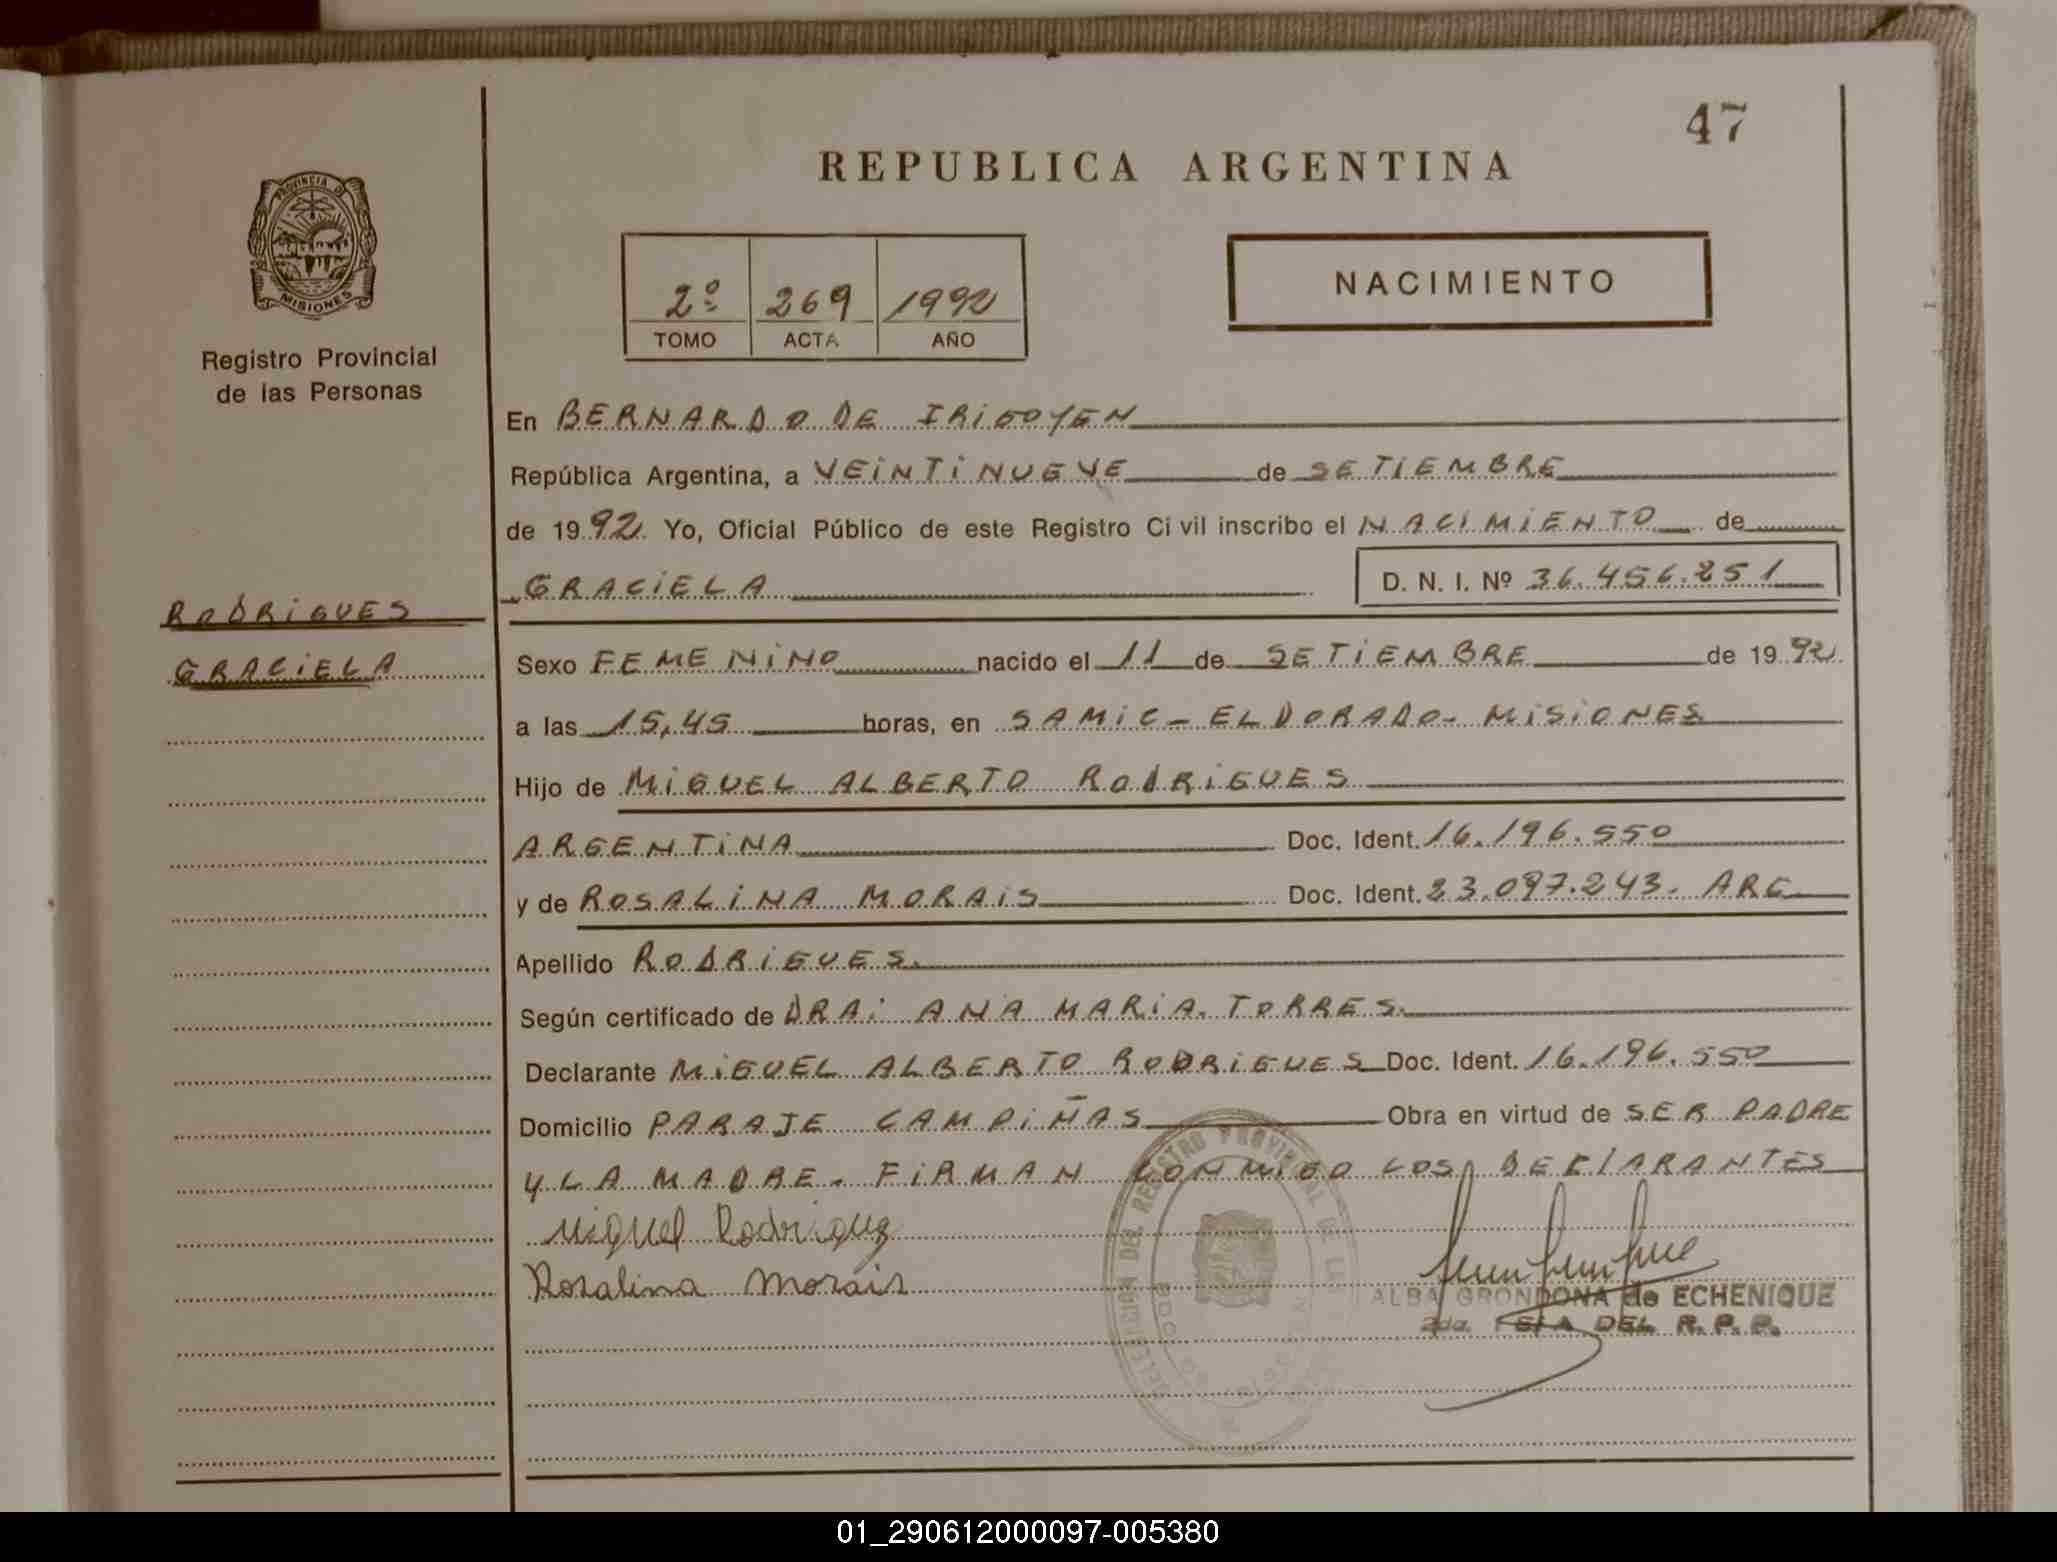 47
REPUBLICA ARGENTINA
PROVINCIA D
MISIONES
Registro Provincial
de las Personas
2º 269 1992
TOMO ACTA AÑO
NACIMIENTO
En BERNARDO DE IRIGOYEN
República Argentina, a VEINTINUEVE de SETIEMBRE
de 1992. Yo, Oficial Público de este Registro Civil inscribo el NACIMIENTO de
GRACIELA D. N. I. Nº 36.456.251
RODRIGUES
GRACIELA
Sexo FEMENINO nacido el 11 de SETIEMBRE de 1992
a las 15,45 horas, en SAMIC - ELDORADO - MISIONES
Hijo de MIGUEL ALBERTO RODRIGUES
ARGENTINA Doc. Ident. 16.196.550
y de ROSALINA MORAIS Doc. Ident. 23.097.243. ARG
Apellido RODRIGUES.
Según certificado de DRA: ANA MARIA TORRES.
Declarante MIGUEL ALBERTO RODRIGUES Doc. Ident. 16.196.550
Domicilio PARAJE CAMPIÑAS Obra en virtud de SER PADRE
Y LA MADRE. FIRMAN CONMIGO LOS DECLARANTES
Miguel Rodriguez
Rosalina Morais
DEL REGISTRO PROVINCIAL DE
ALBA GRONDONA de ECHENIQUE
2da. JEFA DEL R. P. P.
01_290612000097-005380